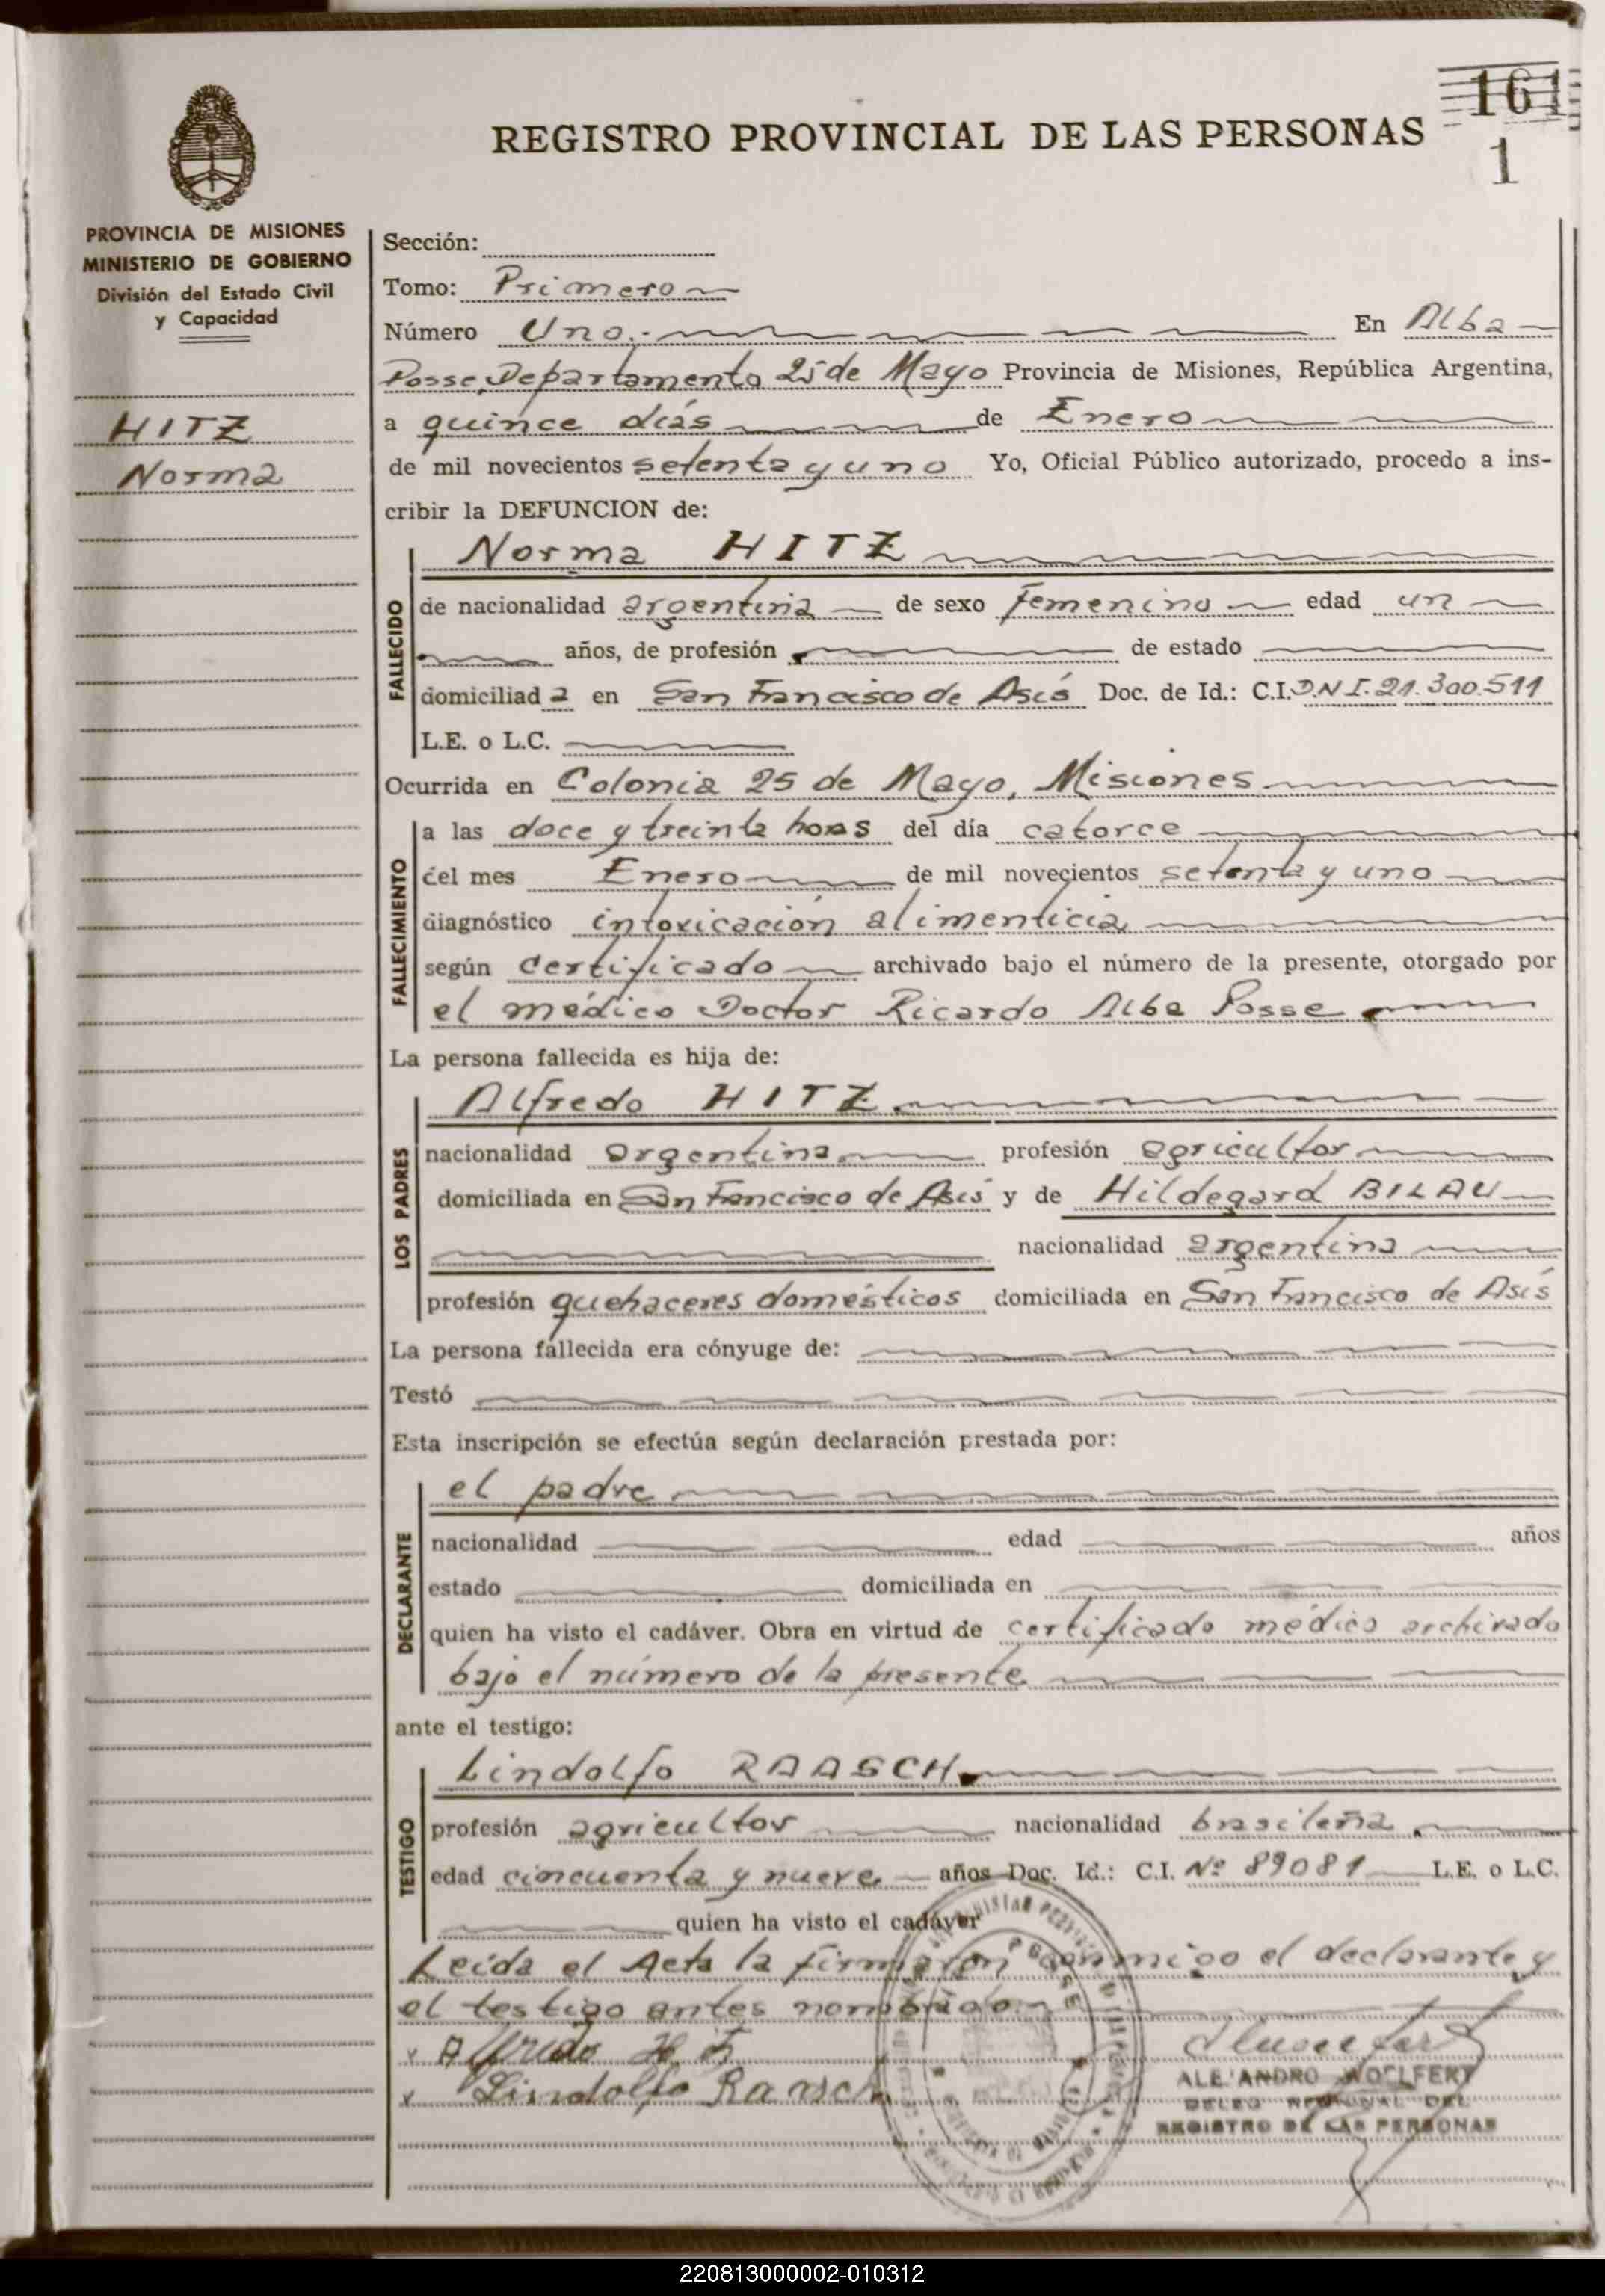 161
1
REGISTRO PROVINCIAL DE LAS PERSONAS
PROVINCIA DE MISIONES
MINISTERIO DE GOBIERNO
División del Estado Civil
y Capacidad
HITZ
Norma
Sección:
Tomo: Primero
Número Uno.- En Alba
Posse, Departamento 25 de Mayo Provincia de Misiones, República Argentina,
a quince días de Enero
de mil novecientos setenta y uno Yo, Oficial Público autorizado, procedo a ins-
cribir la DEFUNCION de:
Norma HITZ
FALLECIDO
de nacionalidad argentina de sexo femenino edad un
años, de profesión de estado
domiciliad a en San Francisco de Asís Doc. de Id.: C.I. D.N.I. 21.300.511
L.E. o L.C.
Ocurrida en Colonia 25 de Mayo, Misiones
FALLECIMIENTO
a las doce y treinta horas del día catorce
del mes Enero de mil novecientos setenta y uno
diagnóstico intoxicación alimenticia
según certificado archivado bajo el número de la presente, otorgado por
el médico Doctor Ricardo Alba Posse
La persona fallecida es hija de:
LOS PADRES
Alfredo HITZ
nacionalidad argentina profesión agricultor
domiciliada en San Francisco de Asís y de Hildegard BILAU
nacionalidad argentina
profesión quehaceres domésticos domiciliada en San Francisco de Asís
La persona fallecida era cónyuge de:
Testó
Esta inscripción se efectúa según declaración prestada por:
DECLARANTE
el padre
nacionalidad edad años
estado domiciliada en
quien ha visto el cadáver. Obra en virtud de certificado médico archivado
bajo el número de la presente
ante el testigo:
TESTIGO
Lindolfo RAASCH
profesión agricultor nacionalidad brasileña
edad cincuenta y nueve años Doc. Id.: C.I. Nº 89081 L.E. o L.C.
quien ha visto el cadáver
Leída el Acta la firmaron conmigo el declarante y
el testigo antes nombrado.-
x Alfredo Hitz
x Lindolfo Raasch
ALEJANDRO WOLFERT
REGISTRO DE LAS PERSONAS
220813000002-010312